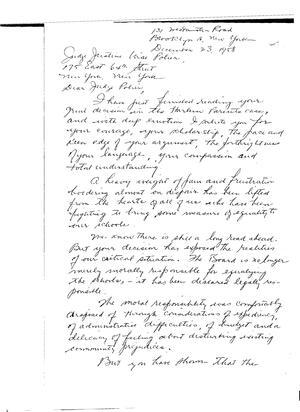 131 Westminster Road
Brooklyn 18, New York
December 23, 1958
Judge Justine Wise Polier
175 East 64th Street
New York, New York
Dear Judge Polier,
I have just finished reading your
final decision in the Harlem Parents case,
and with deep emotion I salute you for
your courage, your scholarship, the pace and
keen edge of your argument, the forthrightness
of your language, your compassion and
total understanding.
A heavy weight of pain and frustration
bordering almost on despair has been lifted
from the hearts of all of us who have been
fighting to bring some measure of equality to
our schools.
We know there is still a long road ahead.
But your decision has exposed the realities
of our critical situation. The Board is no longer
merely morally responsible for equalizing
the schools, - it has been declared legally res-
ponsible.
The moral responsibility was comfortably
disposed of through considerations of expediency,
of administrative difficulties, of budget and a
delicacy of feeling about disturbing existing
community prejudices.
But you have shown that the